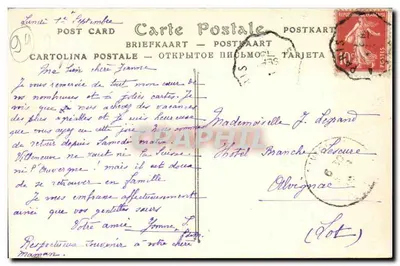 Lundi 1er Septembre
POST CARD
Carte Postale
POSTKART
BRIEFKAART — POSTKAART
CARTOLINA POSTALE — ОТКРЫТОЕ ПИСЬМО — TARJETA
Ma bien chère Jeanne
Je vous remercie de tout mon cœur de
vos nombreuses et si jolies cartes. Je
vois que vous avez des vacances
des plus agréables et je suis heureuse
que vous ayez eu cette joie
de retour depuis Samedi
ne vaut ni la Suisse
ni l'Auvergne ! mais il est doux
de se retrouver en famille.
Je vous embrasse affectueusement
ainsi que vos gentilles sœurs
Votre amie Yvonne
Respectueux souvenir à votre chère
Maman.
Mademoiselle J. Legrand
Hôtel Branche Lescure
Alvignac
(Lot)